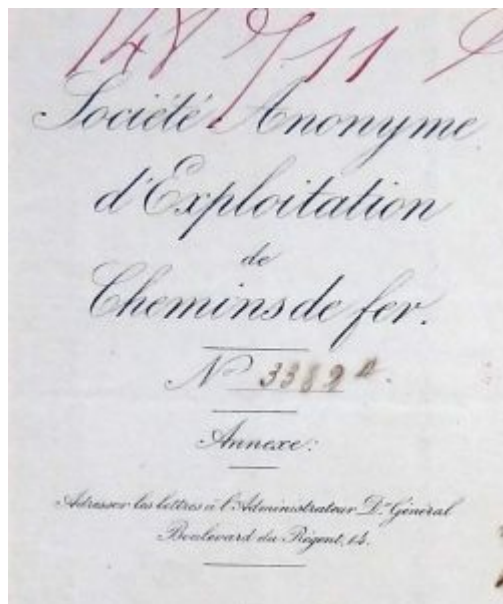 148 / 11
Société Anonyme
d'Exploitation
de
Chemins de fer.
N° 3389 A.
Annexe:
Adresser les lettres à l'Administrateur D.r Général
Boulevard du Régent,